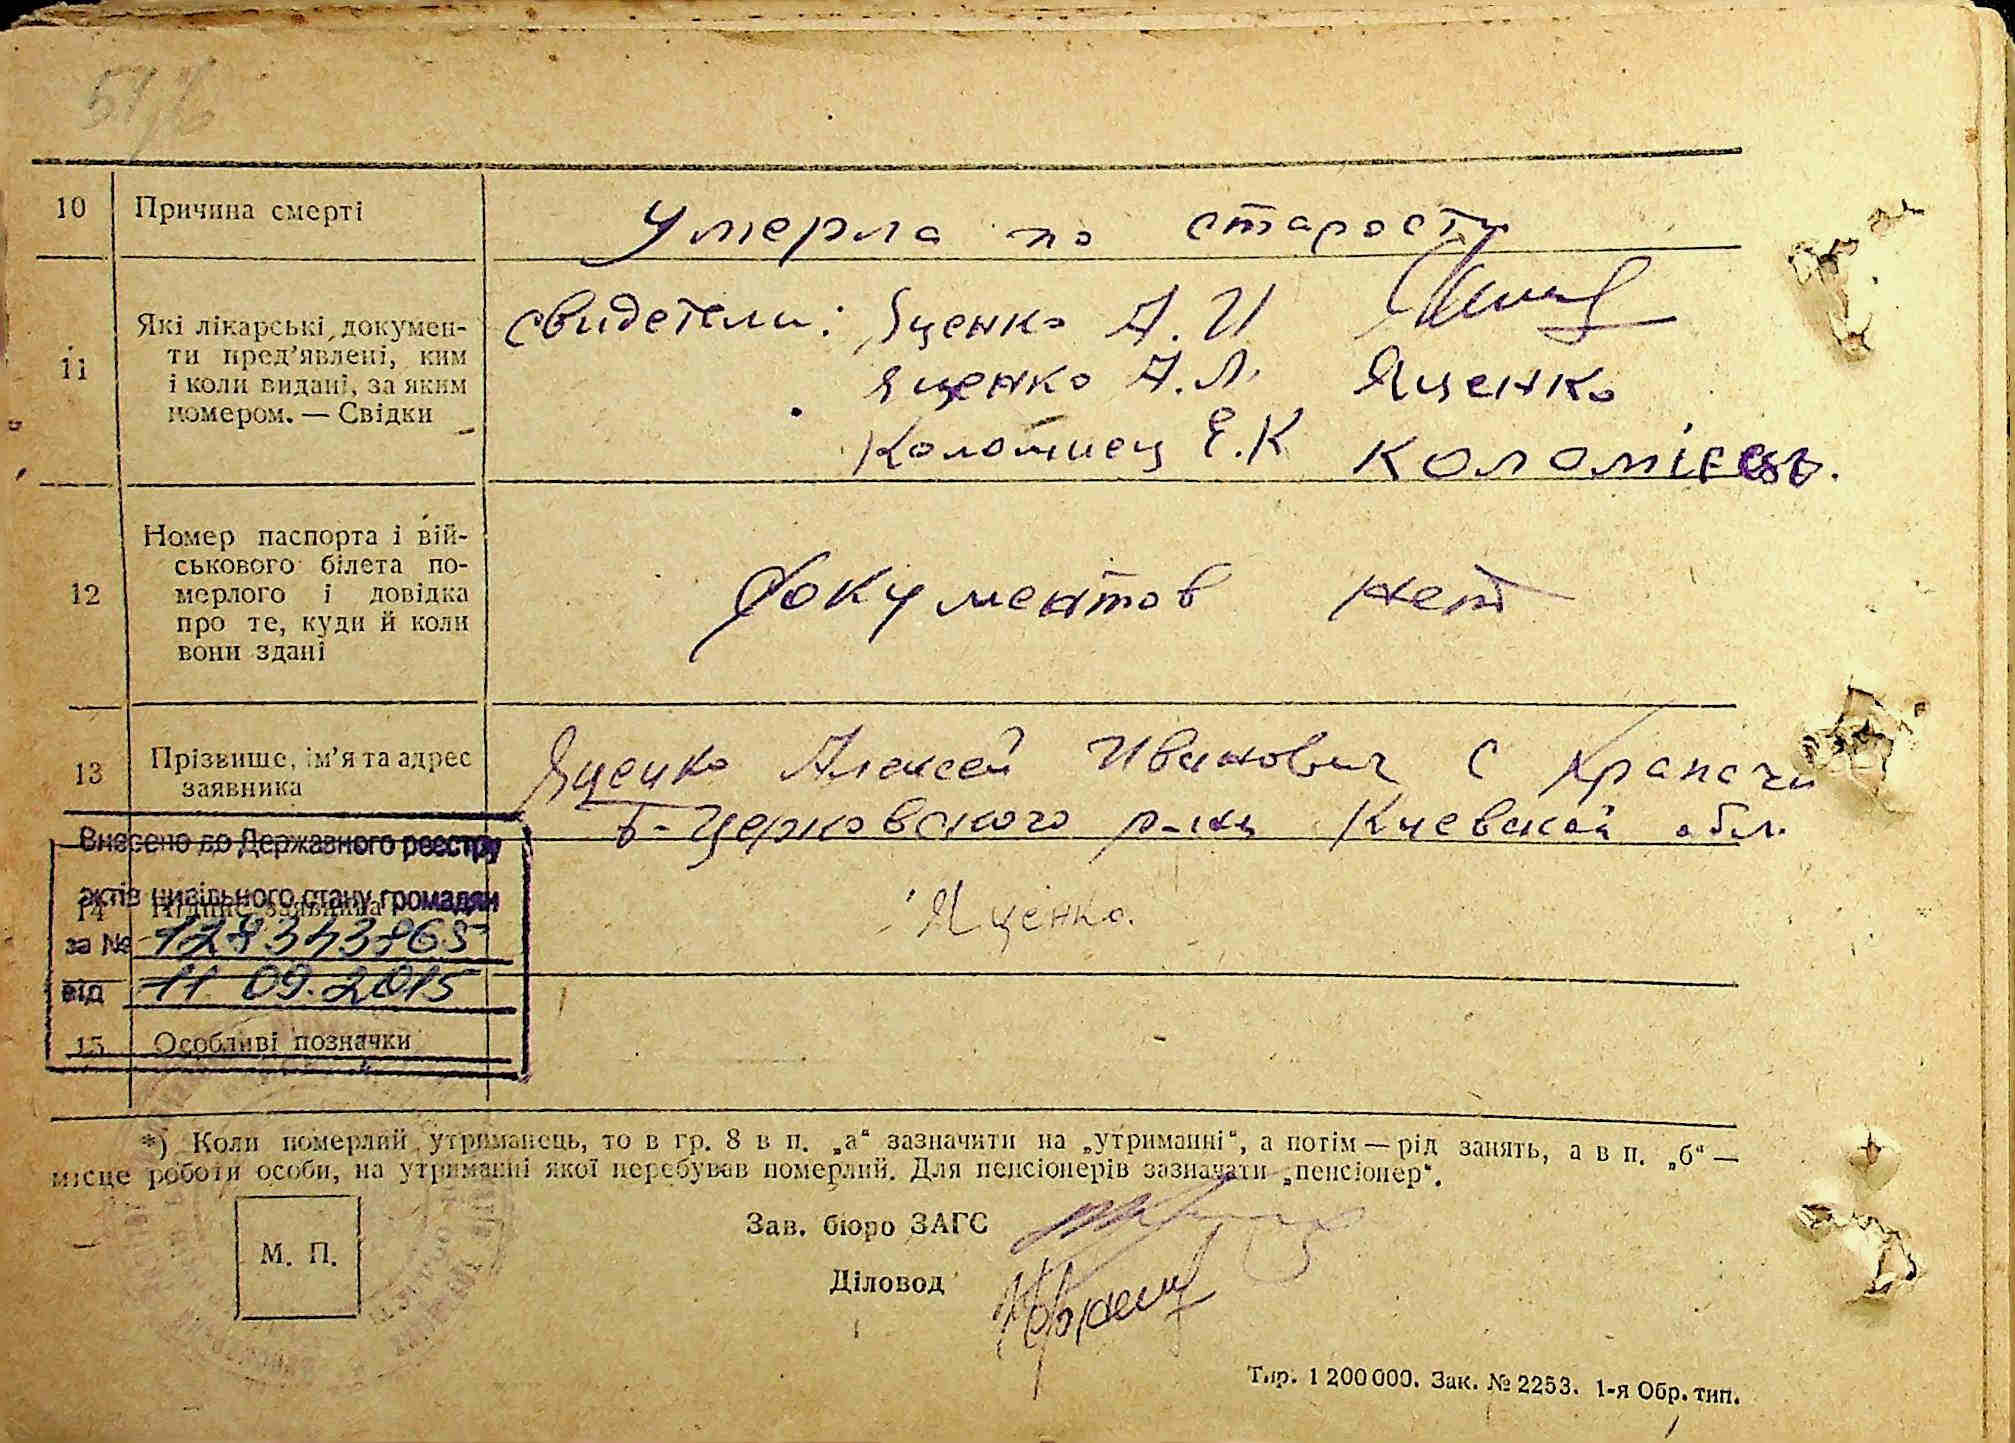 10 Причина смерті Умерла по старости
11 Які лікарські документи пред'явлені, ким і коли видані, за яким номером. — Свідки
свидетели: Яценко А. И
Яценко А.Л. Яценко
Коломиец Е.К Коломієць.
12 Номер паспорта і вій-
ськового білета по-
мерлого і довідка
про те, куди й коли
вони здані
Документов нет
13 Прізвище, ім'я та адрес
заявника
Яценко Алексей Иванович с Храпачи
Б-Церковского р-на Киевской обл.
Внесено до Державного реєстру
актів цивільного стану громадян
14 Підпис заявника Яценко.
за №
від 11 09.2015
15 Особливі позначки
*) Коли померлий утриманець, то в гр. 8 в п. „а“ зазначити на „утриманні“, а потім — рід занять, а в п. „б“ —
місце роботи особи, на утриманні якої перебував померлий. Для пенсіонерів зазначати „пенсіонер“.
Зав. бюро ЗАГС
М. П.
Діловод
Тир. 1 200 000. Зак. № 2253. 1-я Обр. тип.